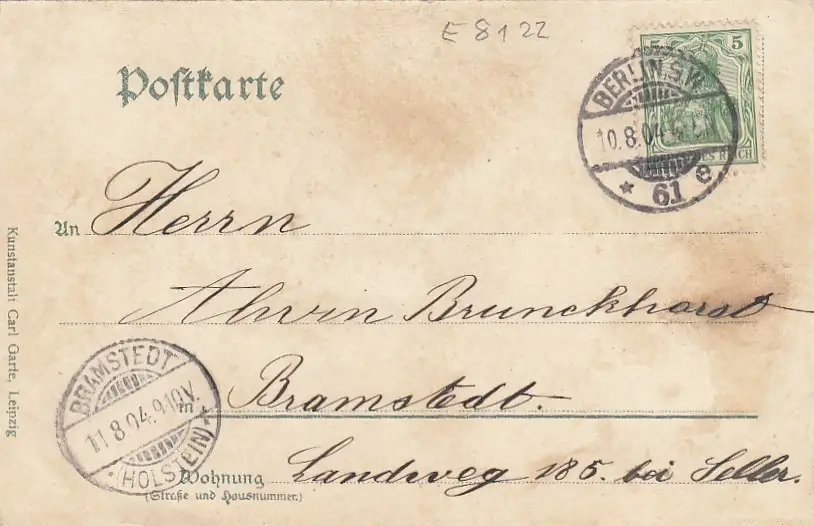 E 8122
Postkarte
5
BERLIN S.W.
10.8.04
* 61 e
REICH
An Herrn
Alwin Brunckhorst
BRAMSTEDT
11.8.04.9-10V.
*(HOLSTEIN)*
in Bramstedt.
Wohnung Landweg 185. bei Seller.
(Straße und Hausnummer.)
Kunstanstalt Carl Garte, Leipzig